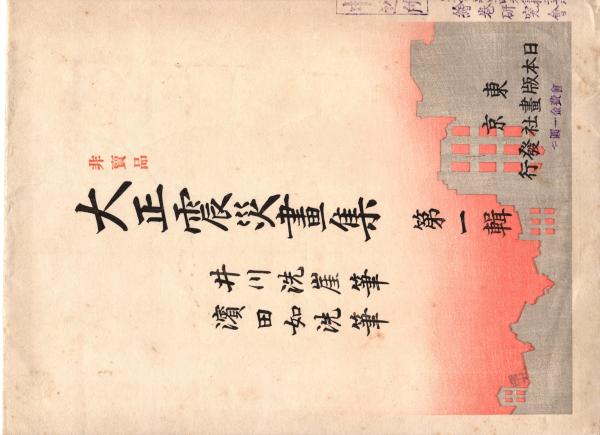 非賣品
大正震災畫集
第一輯
井川洗崖筆
濱田如洗筆
東京
日本版畫社發行